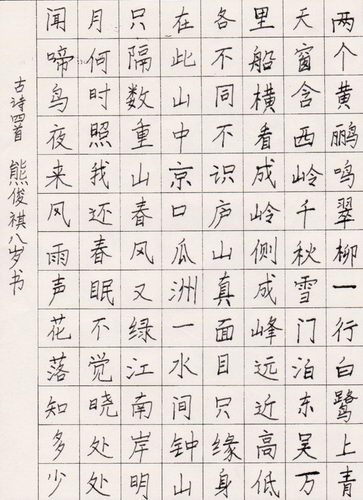 两个黄鹂鸣翠柳一行白鹭上青
天窗含西岭千秋雪门泊东吴万
里船横看成岭侧成峰远近高低
各不同不识庐山真面目只缘身
在此山中京口瓜洲一水间钟山
只隔数重山春风又绿江南岸明
月何时照我还春眠不觉晓处处
闻啼鸟夜来风雨声花落知多少
古诗四首 熊俊祺八岁书